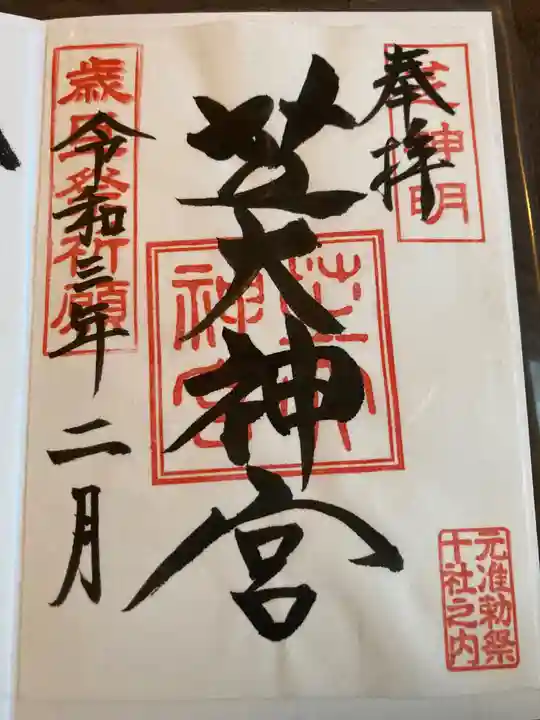 奉拝
芝神明
芝大神宮
芝大神宮
歳旦祭祈願
令和三年二月
元准勅祭
十社之内